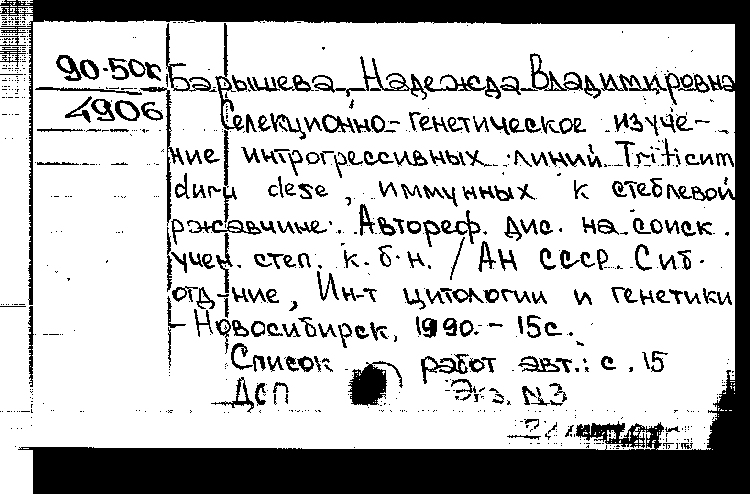 90-50к
4906
Барышева, Надежда Владимировна
Селекционно-генетическое изуче-
ние интрогрессивных линий Triticum
duru dese, иммунных к стеблевой
ржавчине: Автореф. дис. на соиск.
учен. степ. к.б.н. / АН СССР. Сиб.
отд-ние, Ин-т цитологии и генетики
- Новосибирск, 1990. - 15с.
Список работ авт.: с. 15
ДСП Экз. N3